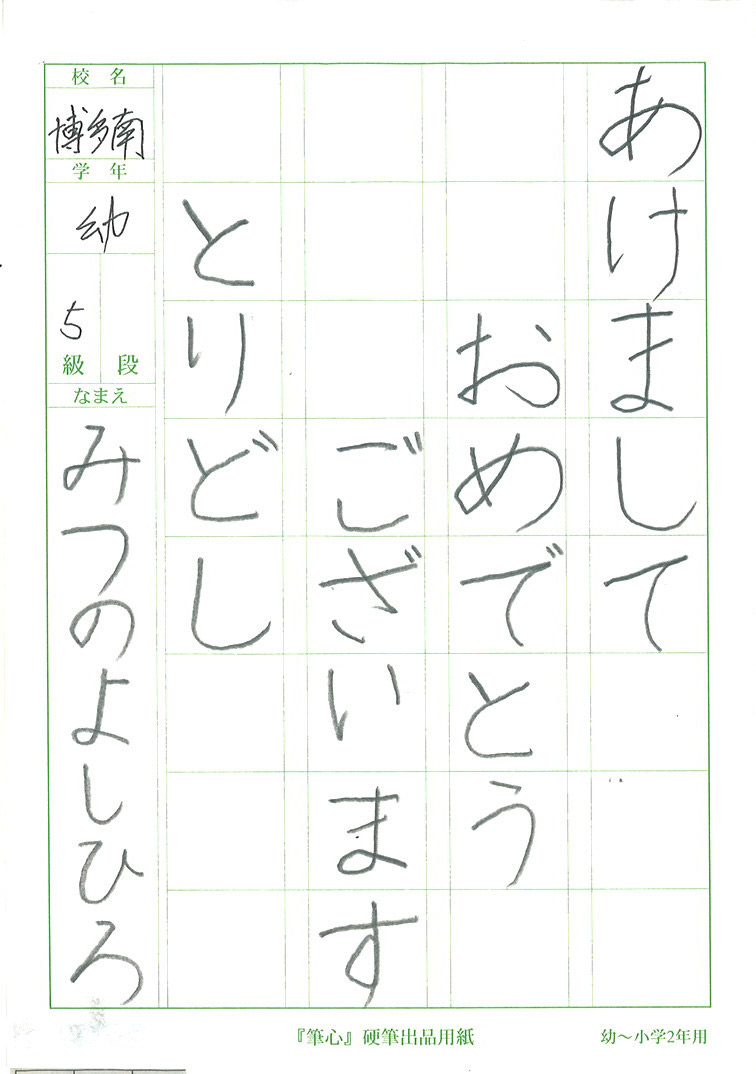 あけまして
おめでとう
ございます
とりどし
校名
博多南
学年
幼
5
級 段
なまえ
みつのよしひろ
『筆心』硬筆出品用紙
幼～小学2年用